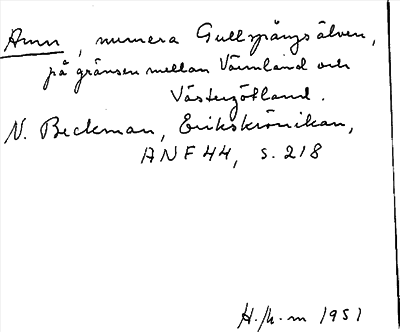 Amn, numera Gullspångsälven,
på gränsen mellan Värmland och
Västergötland.
N. Beckman, Erikskrönikan,
ANF 44, s. 218
H. 1951